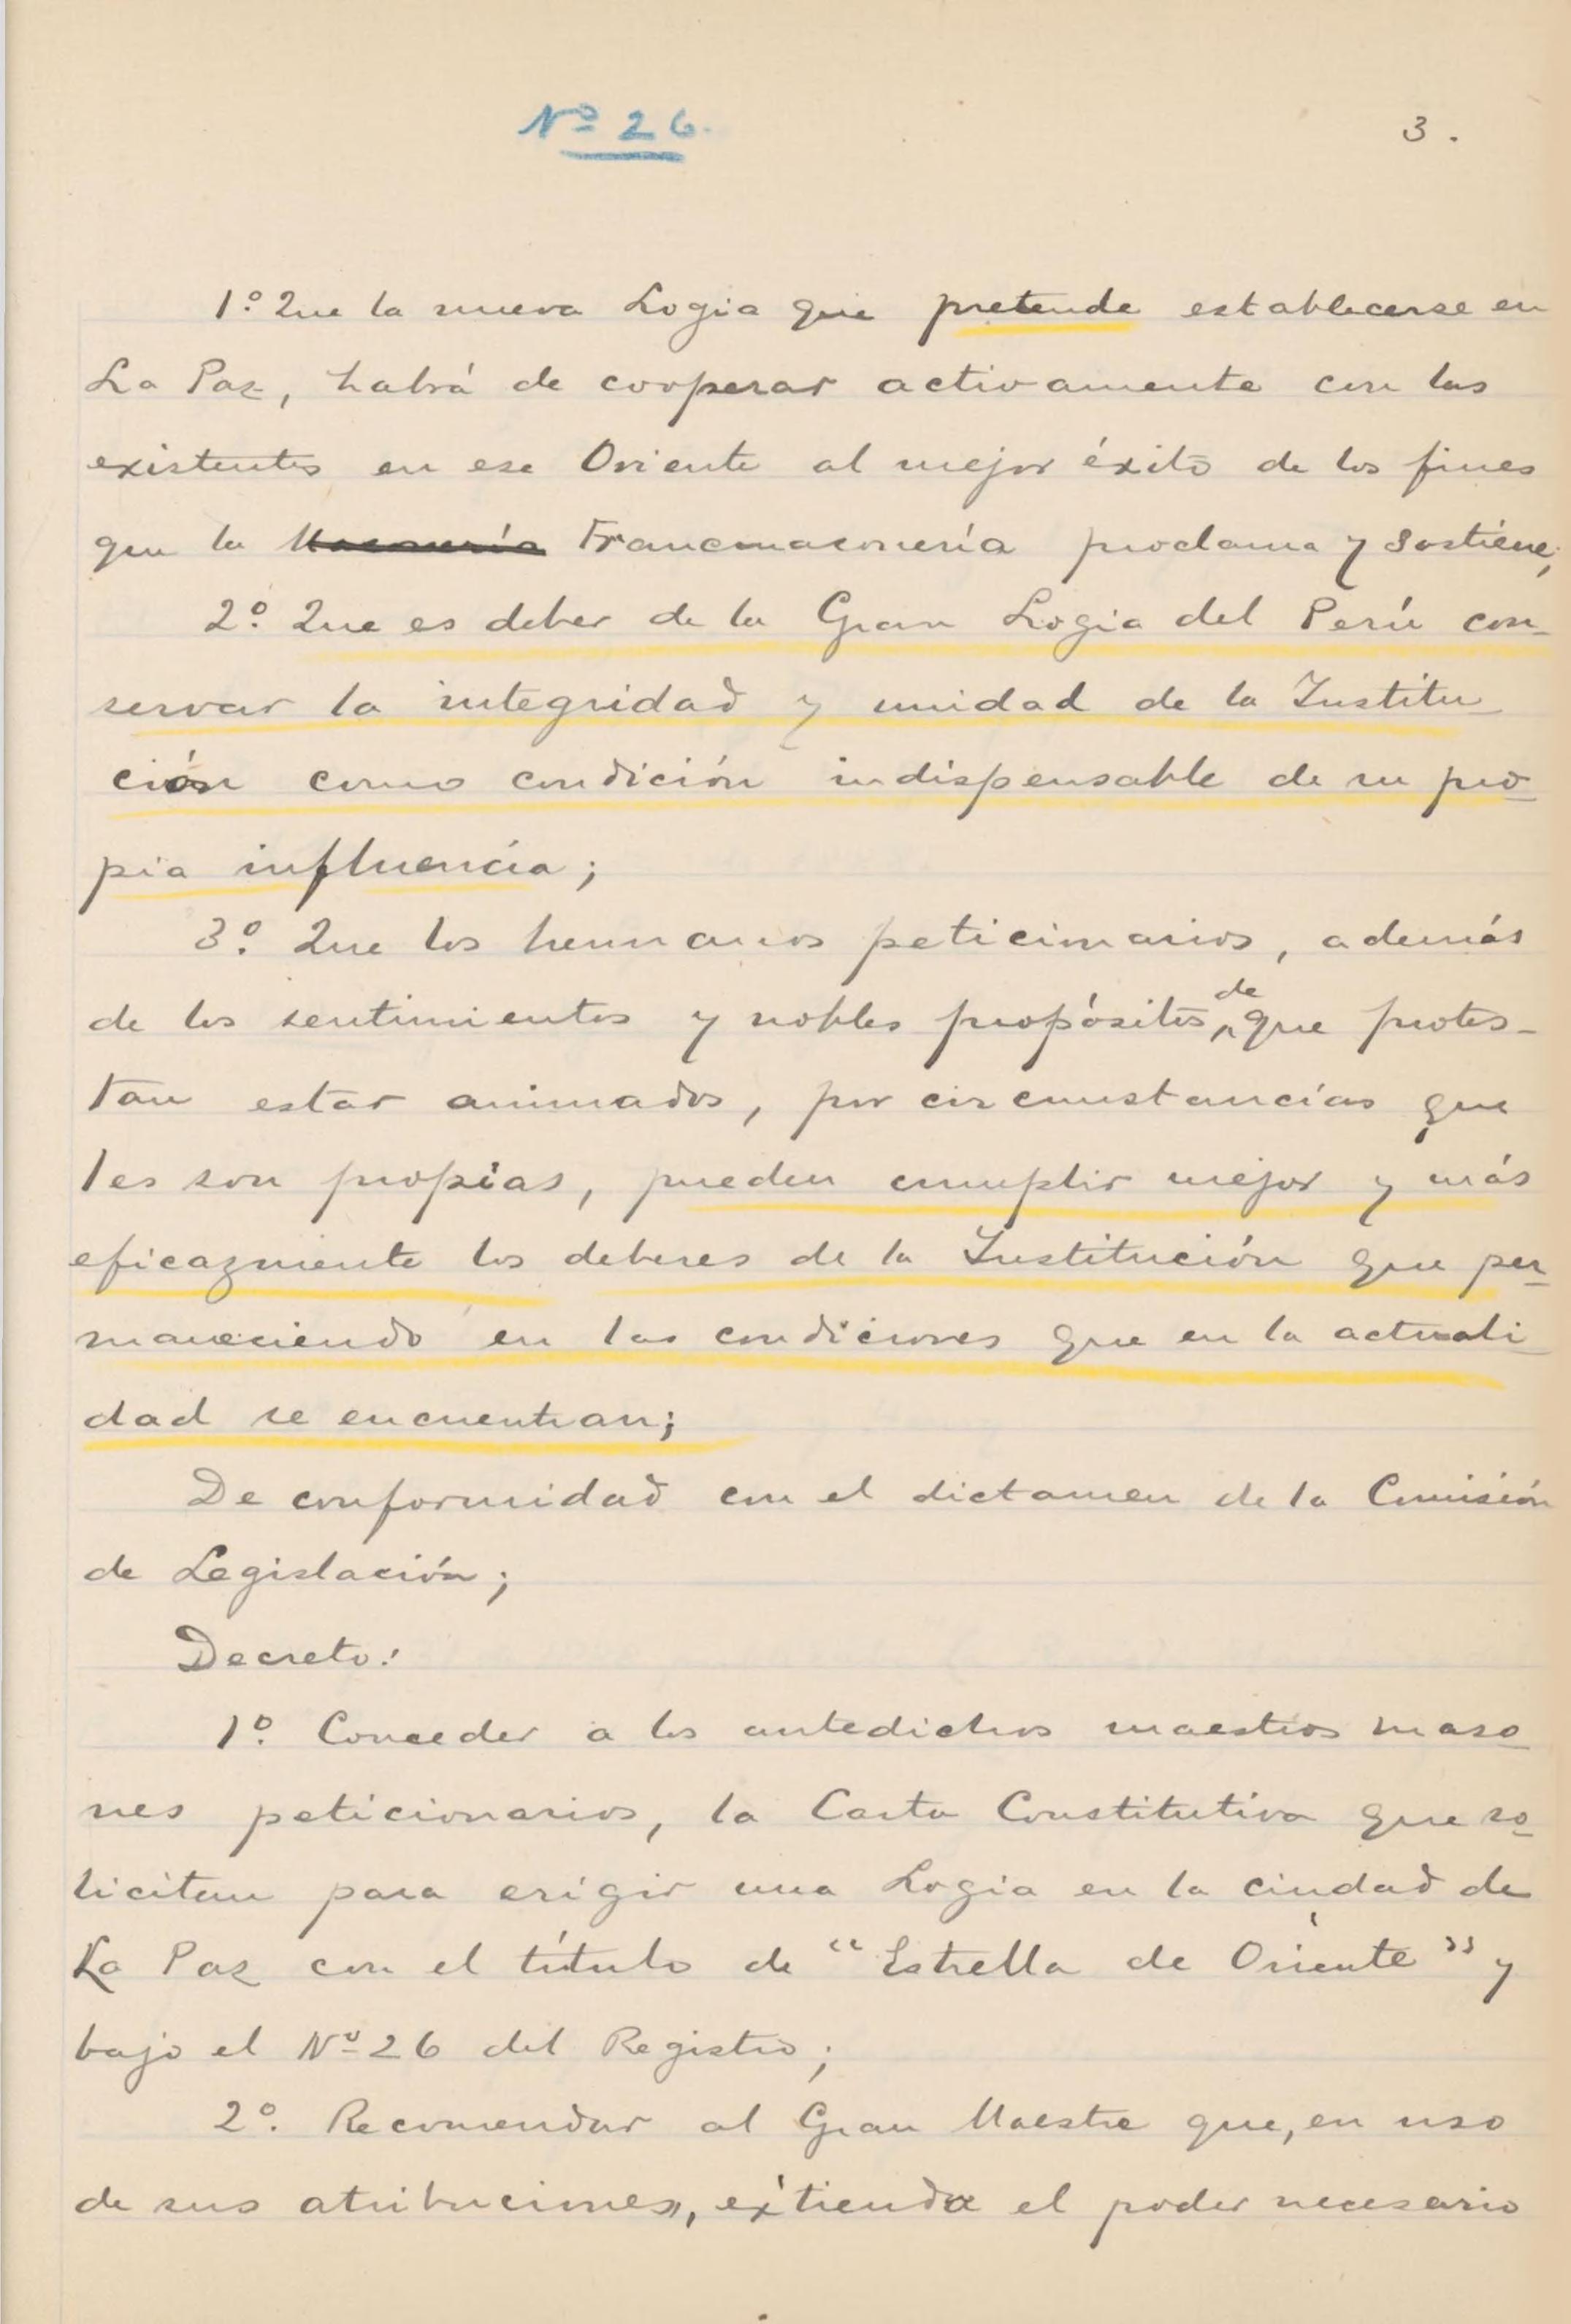 Nº 26.
3.
1º. Que la nueva Logia que pretende establecerse en
La Paz, habrá de cooperar activamente con las
existentes en ese Oriente al mejor éxito de los fines
que la Masonería Francmasonería proclama y sostiene;
2º. Que es deber de la Gran Logia del Perú con-
servar la integridad y unidad de la Institu-
ción como condición indispensable de su pro-
pia influencia;
3º. Que los hermanos peticionarios, además
de los sentimientos y nobles propósitos, de que protes-
tan estar animados, por circunstancias que
les son propias, pueden cumplir mejor y más
eficazmente los deberes de la Institución que per-
maneciendo en las condiciones que en la actuali
dad se encuentran;
De conformidad con el dictamen de la Comisión
de Legislación;
Decreto:
1º. Conceder a los antedichos maestros maso-
nes peticionarios, la Carta Constitutiva que so-
licitan para erigir una Logia en la ciudad de
La Paz con el título de "Estrella de Oriente" y
bajo el Nº 26 del Registro;
2º. Recomendar al Gran Maestre que, en uso
de sus atribuciones, extienda el poder necesario